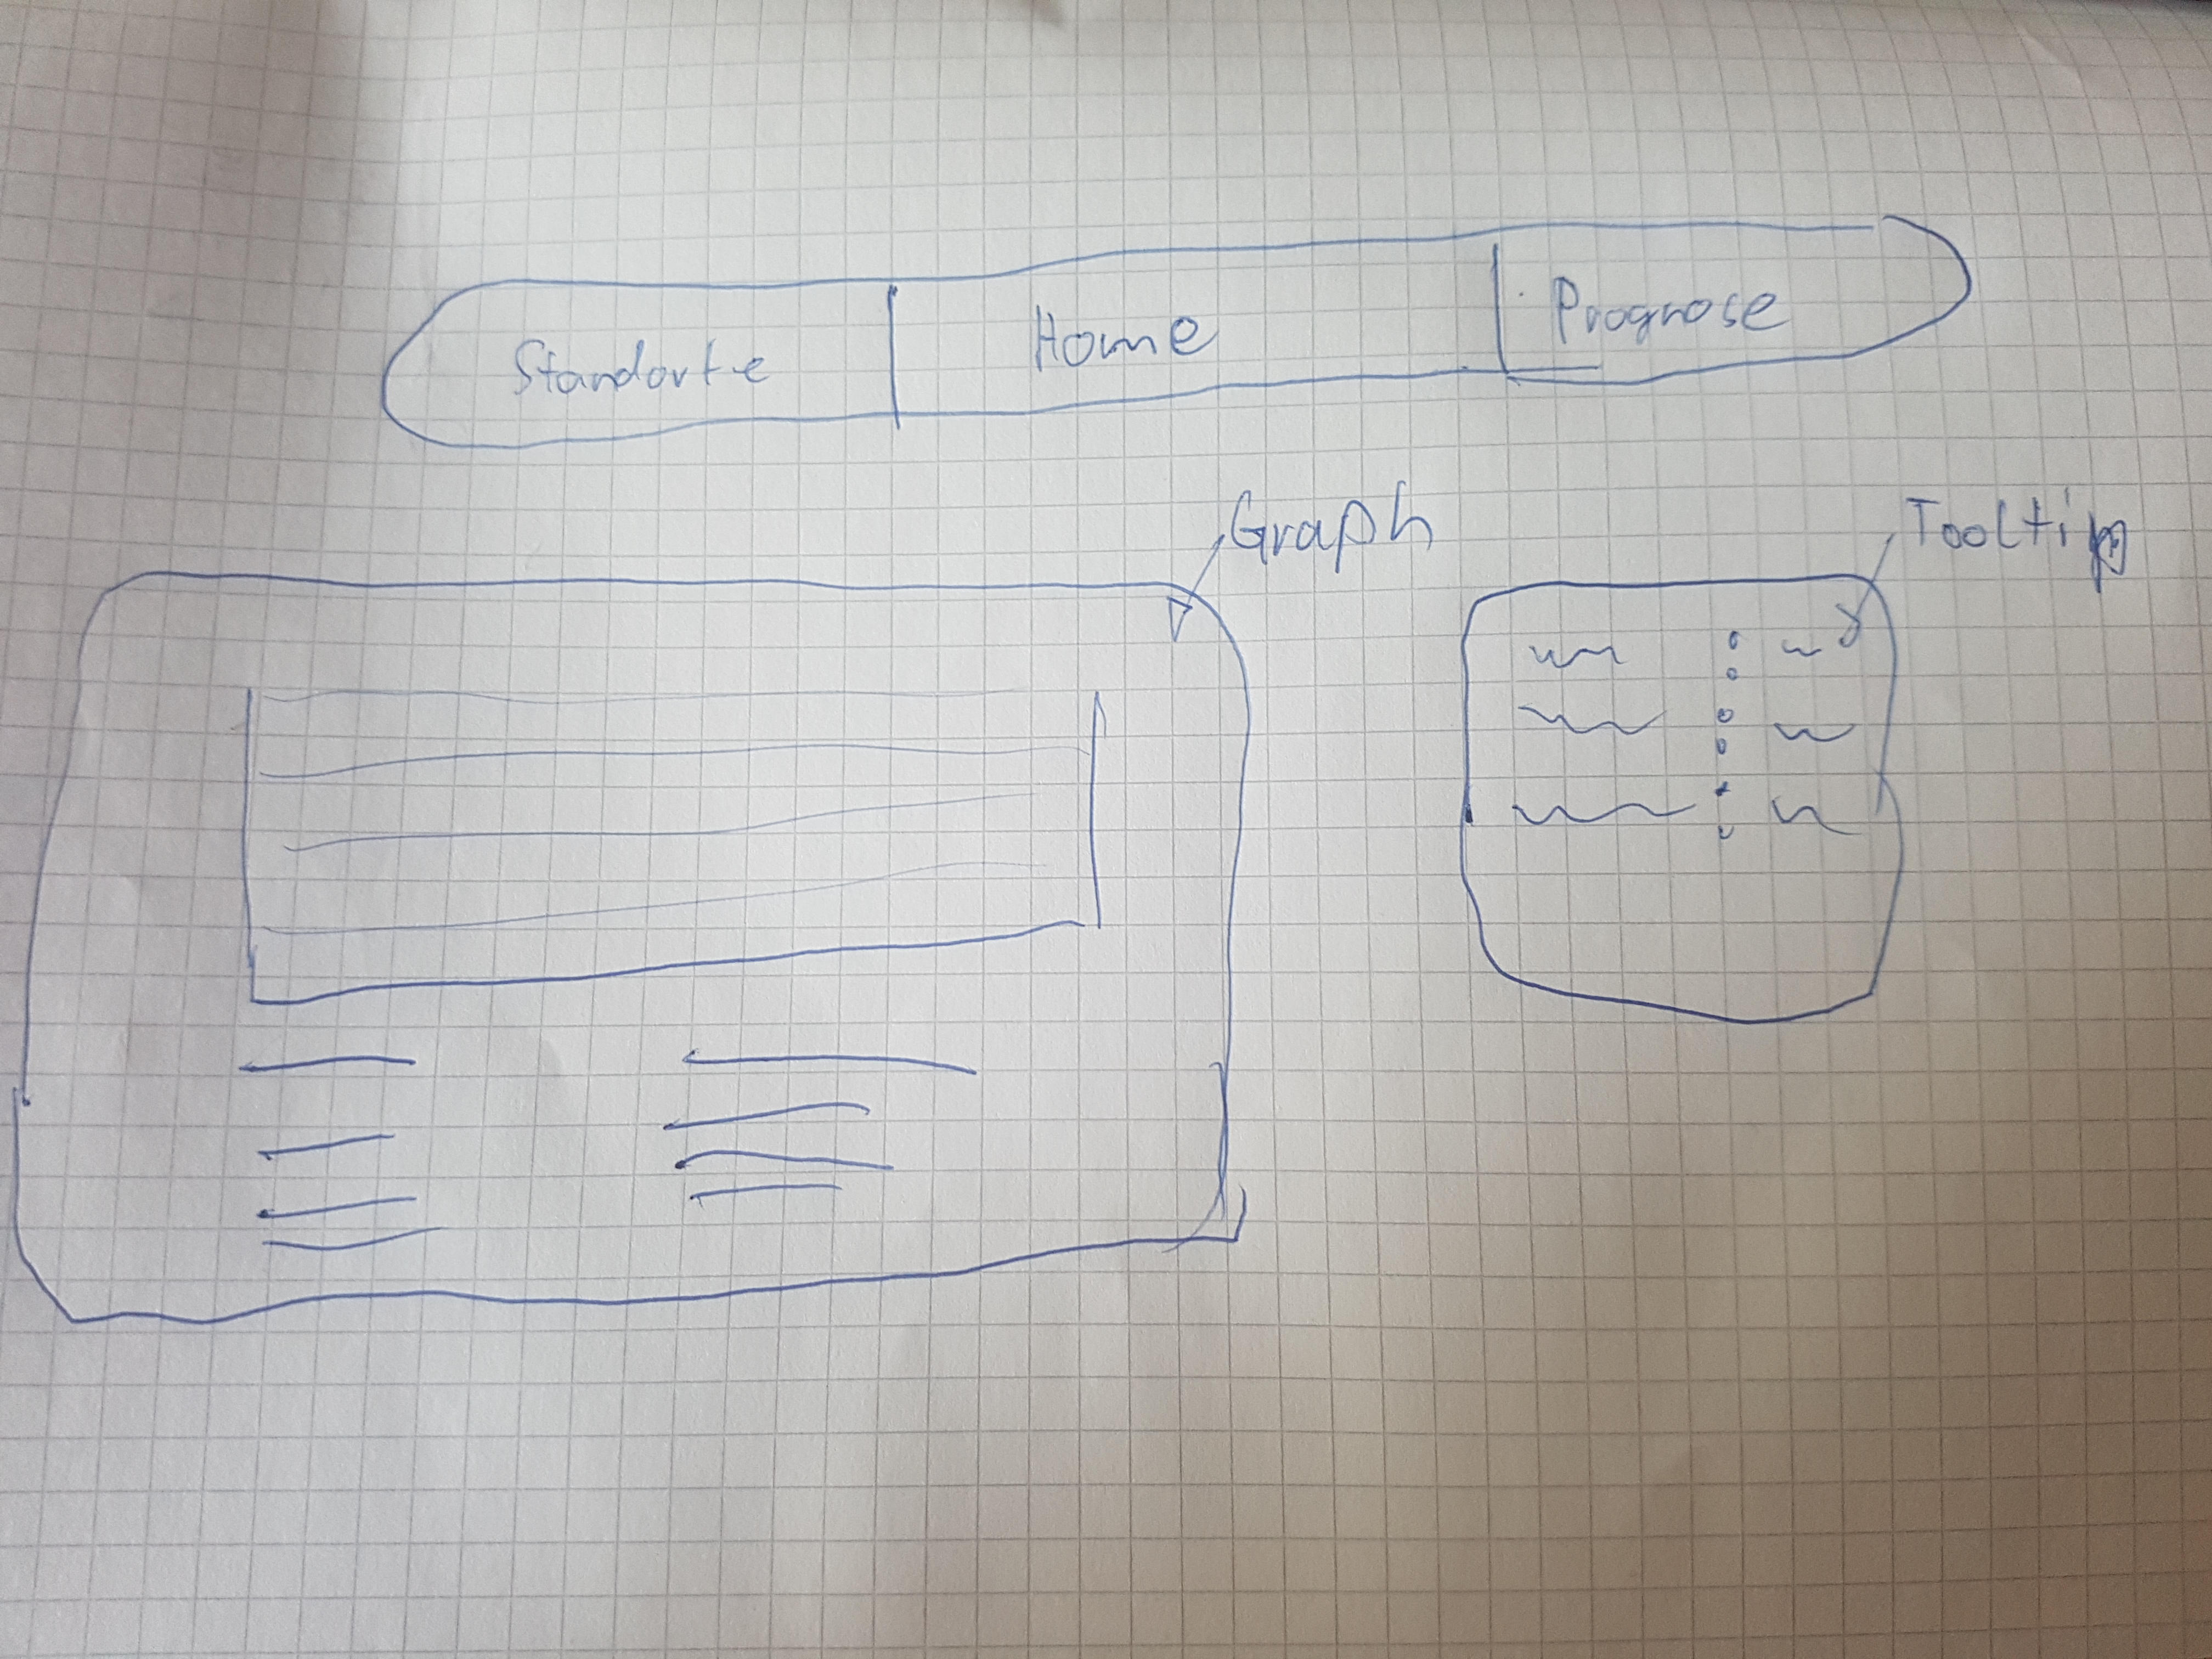 Standorte Home Prognose
Graph Tooltip